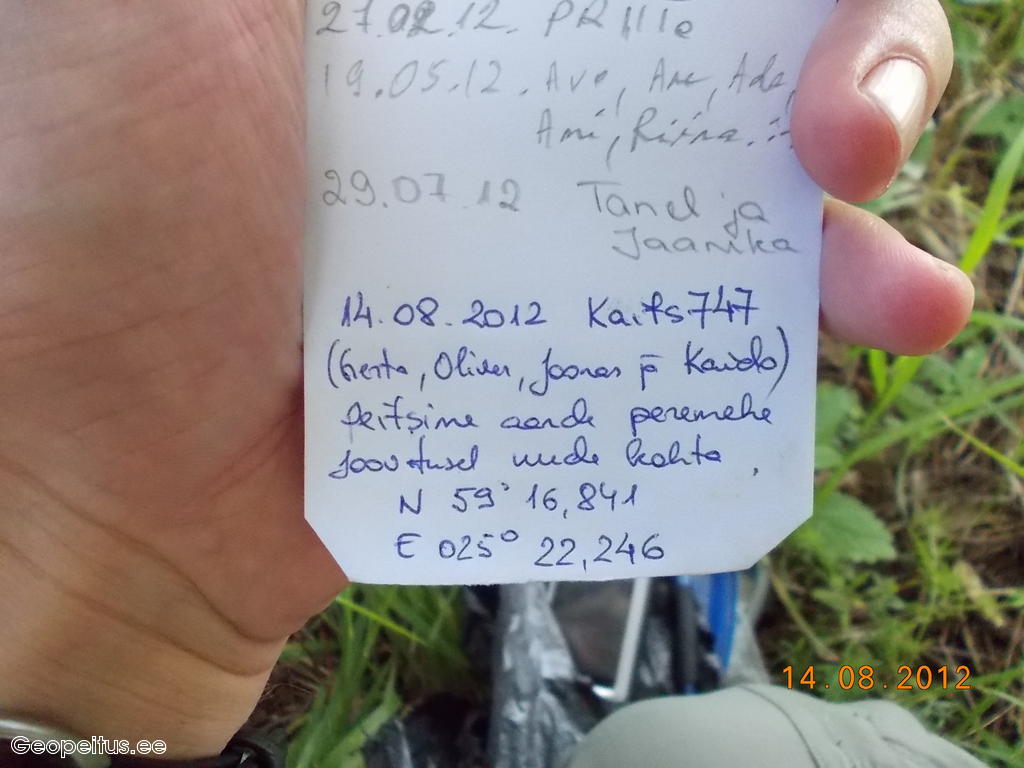 27.02.12. PRIIT
19.05.12. Avo, Are, Ada,
Ami, Riina. :-
29.07.12 Tanel ja
Jaanika
14.08.2012 Kaits747
(Gerta, Oliver, Joonas ja Kaido)
Peitsime aarde peremehe
soovitusel uude kohta.
N 59° 16,841
E 025° 22,246
14.08.2012
Geopeitus.ee